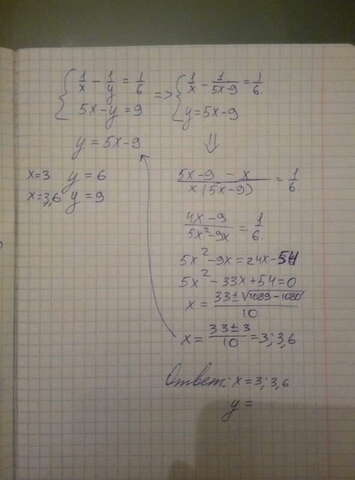 { 1/x - 1/y = 1/6 => { 1/x - 1/(5x-9) = 1/6
5x-y=9 y=5x-9
y=5x-9 ⇓
x=3 y=6
x=3,6 y=9
(5x-9-x)/(x(5x-9)) = 1/6
(4x-9)/(5x²-9x) = 1/6
5x²-9x=24x-54
5x²-33x+54=0
x= (33±√(1089-1080))/10
x= (33±3)/10 =3; 3,6
Ответ: x=3; 3,6
y=